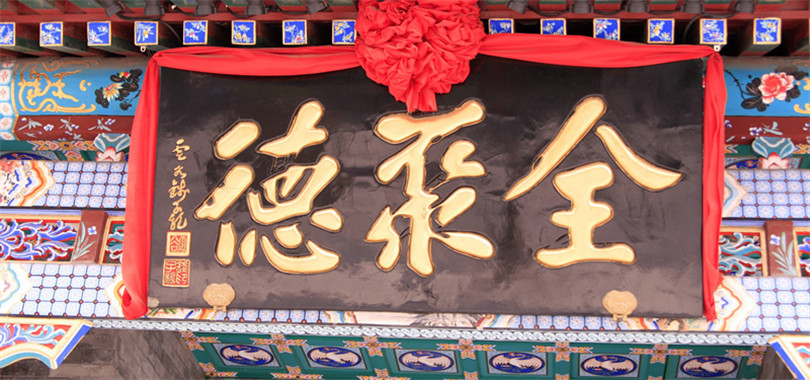 全聚德